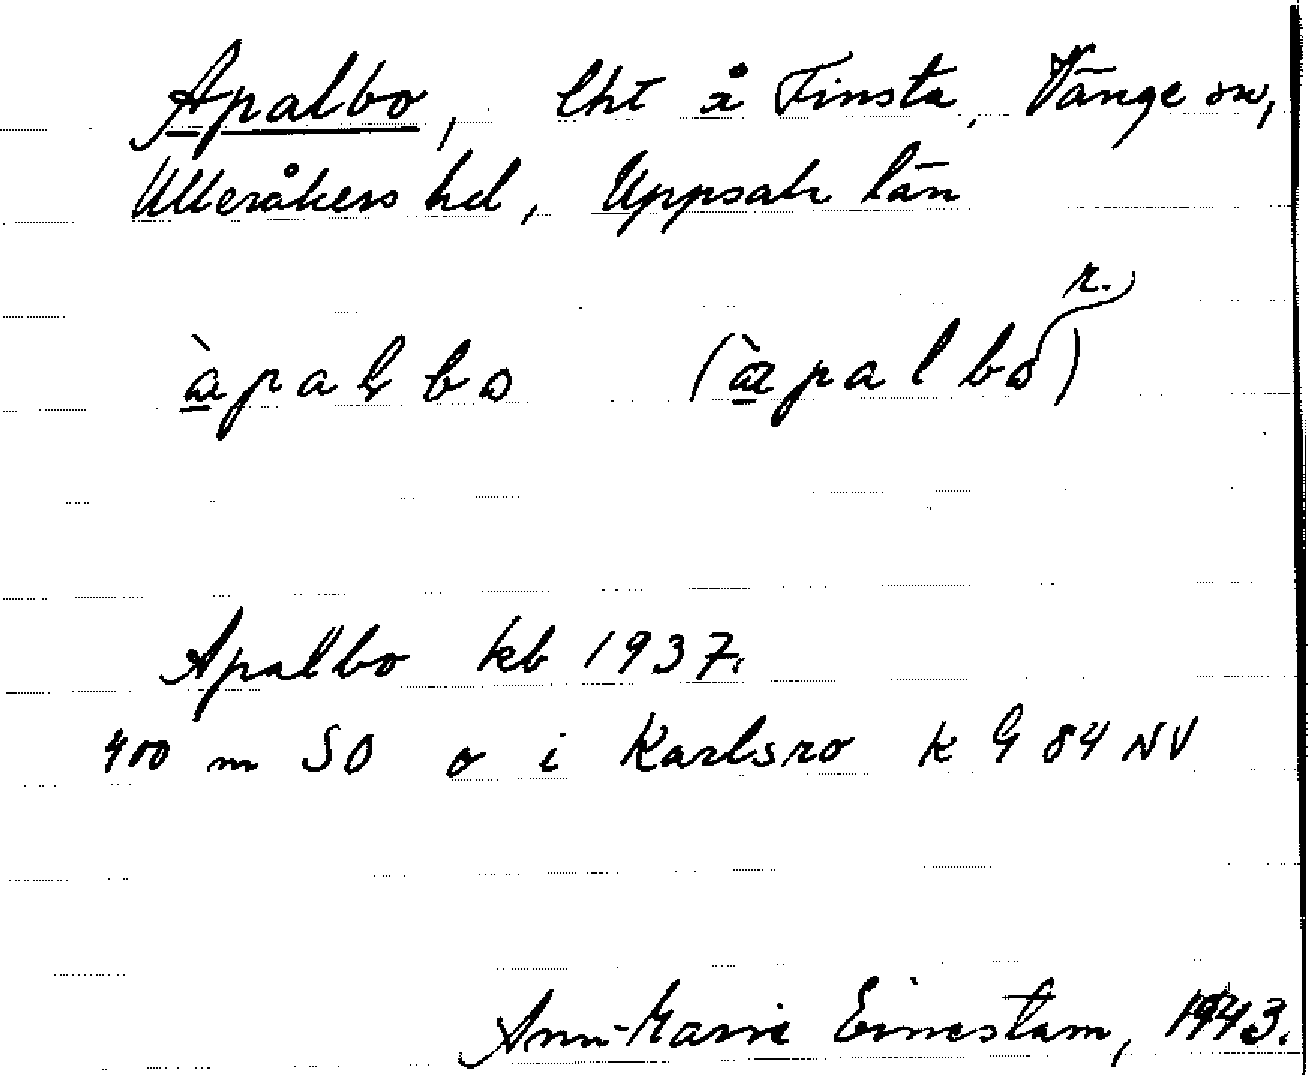 Apalbo, lht å Finsta, Vänge sn,
Ulleråkers hd, Uppsala län
r.
àpaɭbo (àpalbo)
Apalbo kb 1937.
400 m SO o i Karlsro k G 84 NV
Ann-Marie Einestam, 1943.